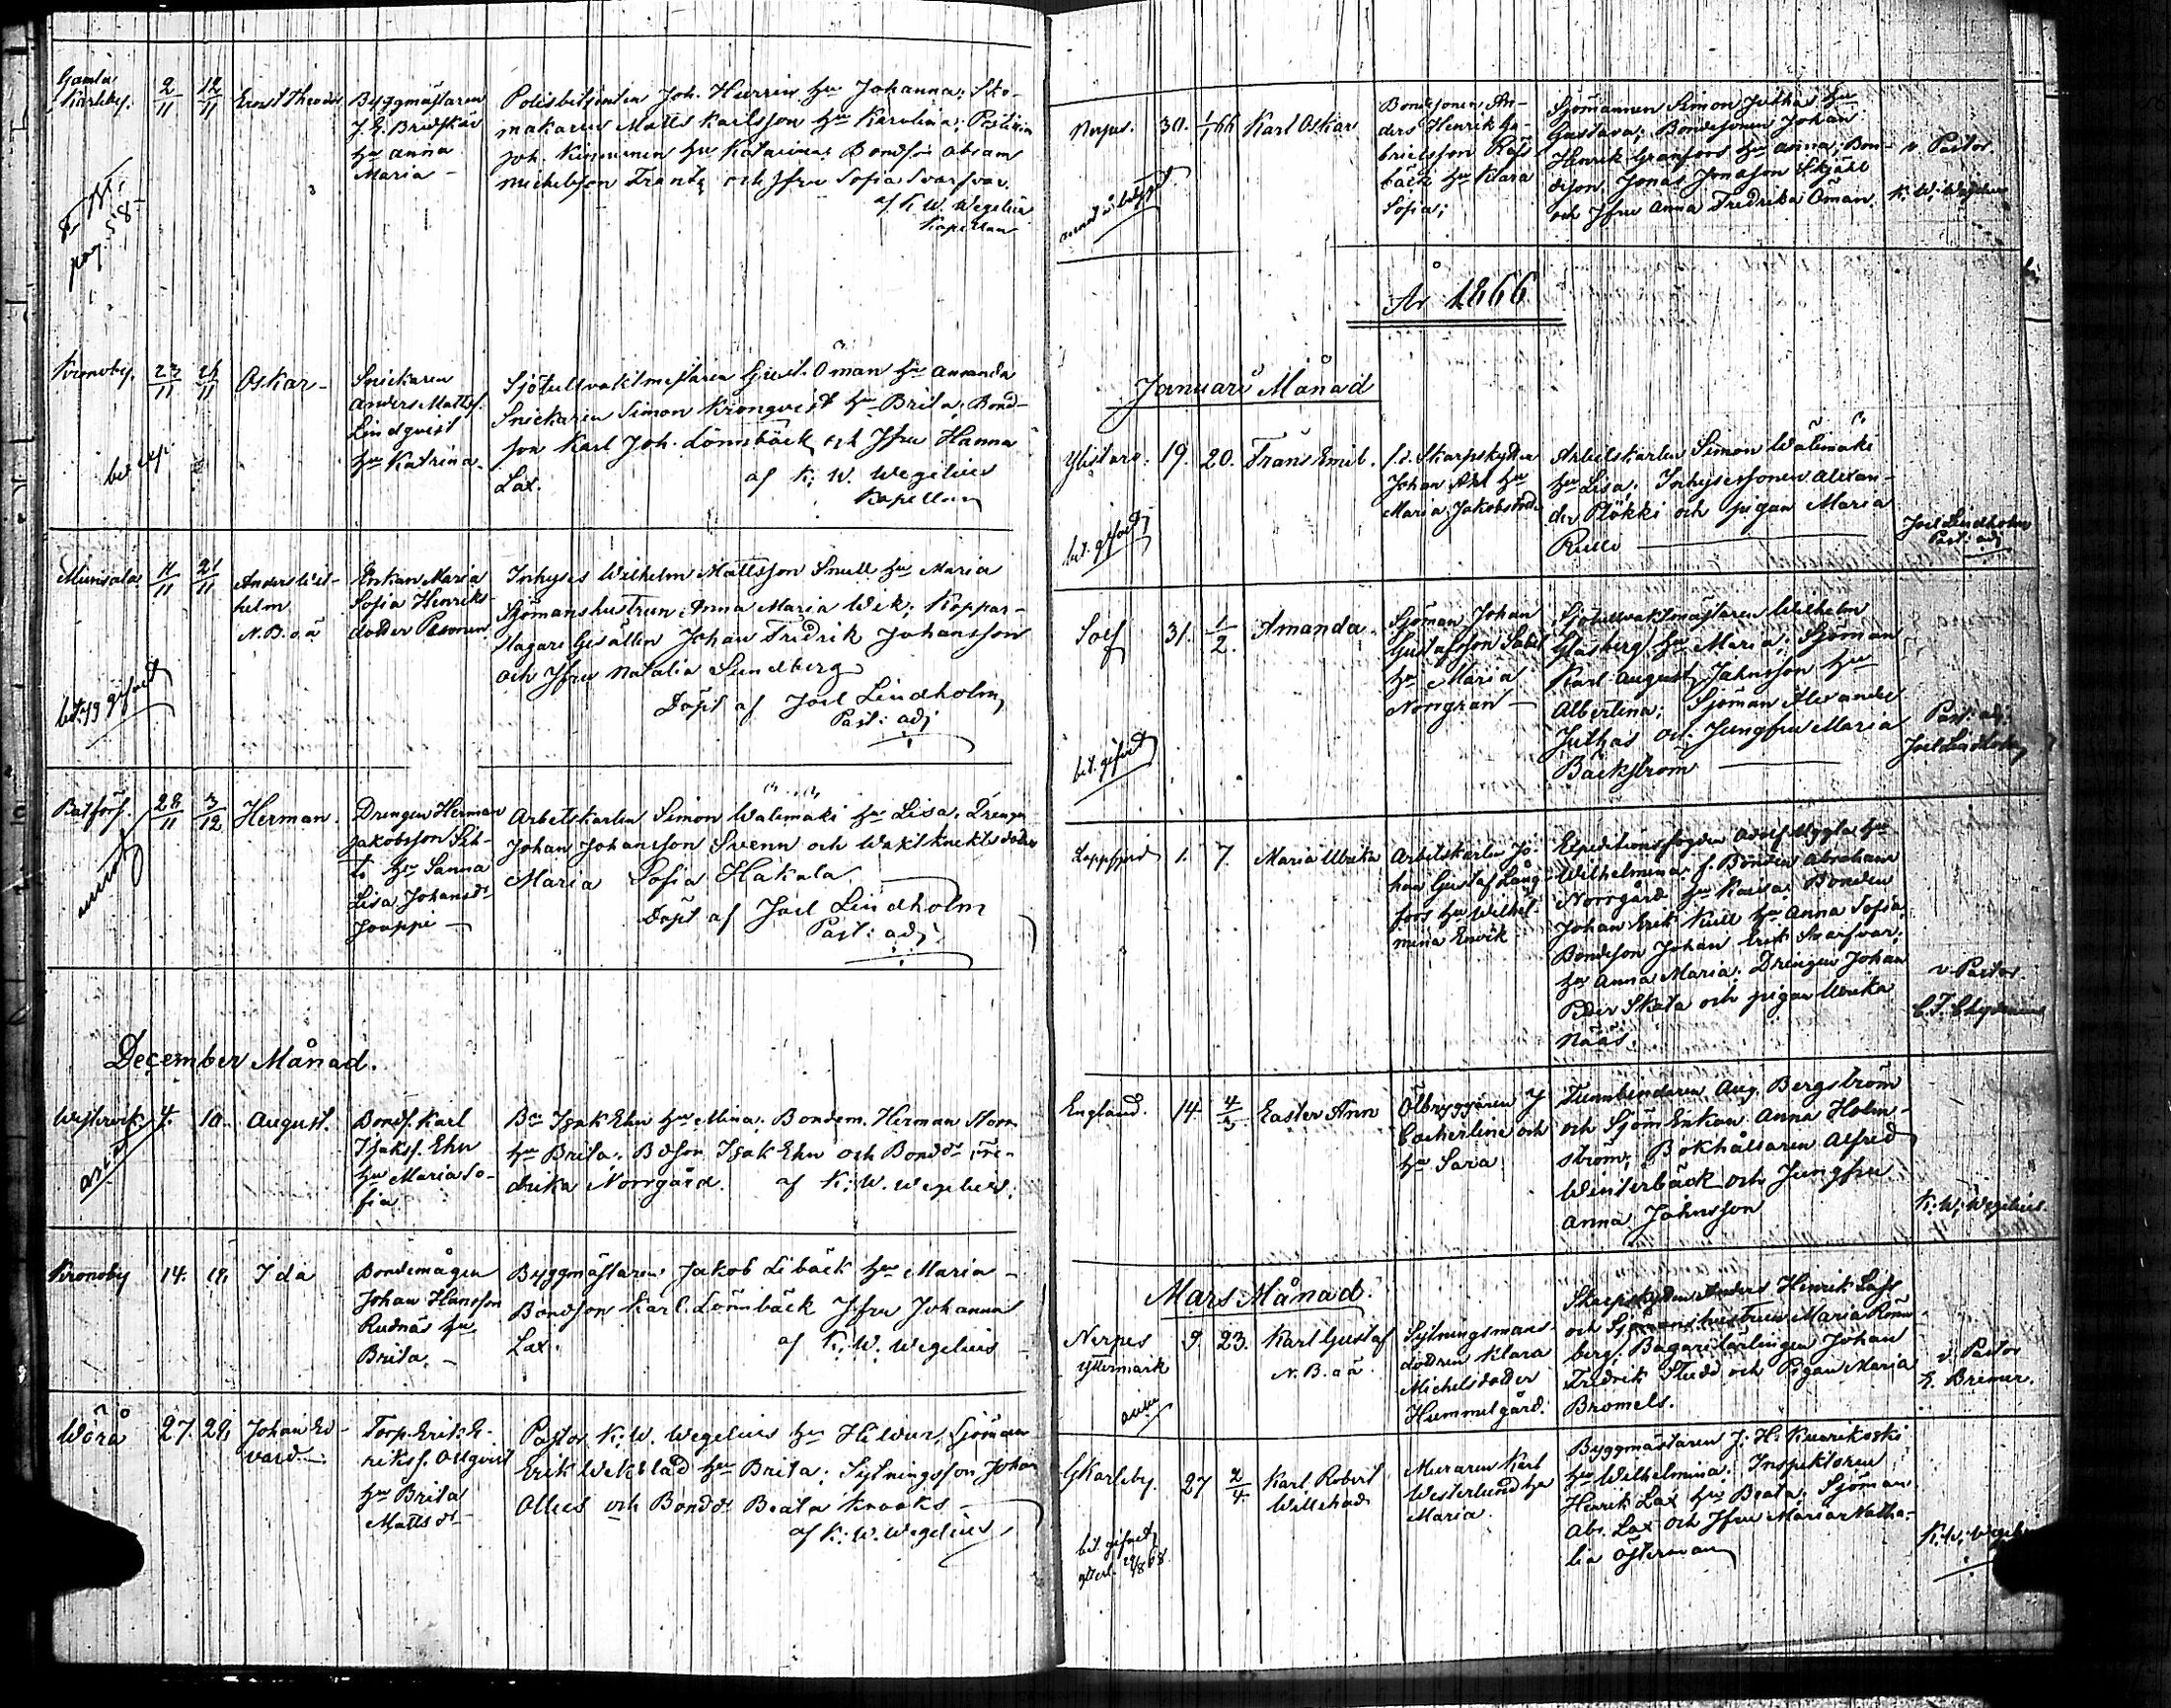 Gamla
Karleby. 2/11 12/11 Ernst Theodor
Byggmästaren
J. E. Bredskär
hu Anna
Maria –
Polisbetjenten Joh. Hurrin hu Johanna; Sko-
makaren Matts Karlsson hu Karolina;
Joh. Kinnunen hu Katarina; Bondson Abram
Michelsson Frants och Jfru Sofia Svarfvar.
af K. W. Wegelius
Kapellan
pag. 58
Kronoby. 23/11 26/11 Oskar –
Snickaren
Anders Matts.
Lindqvist
hu Katrina.
Sjötullvaktmestaren Gust. Öman hu Amanda
Snickaren Simon Kronqvist hu Brita; Bond-
son Karl Joh. Lönnbäck och Jfru Hanna
Lax.
af K. W. Wegelius
Kapellan
Munsala 11/11 21/11 Anders Wil-
helm
N. B. o ä
Enkan Maria
Sofia Henriks-
dotter Pasonen
Inhyses Wilhelm Mattsson Snull hu Maria
Sjömanshustrun Anna Maria Wik; Koppar-
slagare Gesällen Johan Fredrik Johansson
och Jfru Natalia Sundberg
Döpt af Joel Lindholm
Past: adj
28/11 3/12 Herman.
Drengen Herman
Jakobsson
hu Sanna
Lisa Johansdr
Jouppi –
Arbetskarlen Simon Wälimäki hu Lisa, Drengen
Johan Johansson Svenn och Waktknektsdotter
Maria Sofia Hakala
Döpt af Joel Lindholm
Past: adj.
December Månad.
Westervik. 4. 10. August.
Bonds. Karl
Isaks. Ehn
hu Maria So-
fia.
Bn Isak Ehn hu Mina; Bondem. Herman Norr
hu Brita; Bdson Isak Ehn och Bonddr Fre-
drika Norrgård. af K. W. Wegelius.
Kronoby 14. 19. Ida
Bondemågen
Johan Hansson
Rudnäs hu
Brita. –
Byggmästaren Jakob Libäck hu Maria –
Bondson Karl Lönnbäck Jfru Johanna
Lax.
af K. W. Wegelius
Wörå 27. 29. Johan Ed-
vard –
Torp. Erik E-
rikss. Ollqvist
hu Brita
Matts dr
Pastor K. W. Wegelius hu Hildur, Sjöman
Erik Wekblad hu Brita; Sytningsson Johan
Ollus och Bonddr Beata Knooks –
af K. W. Wegelius
Nerpes. 30. 1/1 66 Karl Oskar
Bondsonen An-
ders Henrik Ga-
brielsson Räf-
bäck hu Klara
Sofia;
Sjömannen Simon Juthas hu
Gustava; Bondesonen Johan
Henrik Granfors hu Anna; Bon-
deson Jonas Jonasson Skjäll
och Jfru Anna Fredrika Öman.
v. Pastor
K. W. Wegelius
År 1866
Januari Månad
Ylistaro. 19. 20. Frans Emil.
f. d. Skarpskytten
Johan Ahl hu
Maria Jakobsdr
Arbetskarlen Simon Wälimäki
hu Lisa; Inhysessonen Alexan-
der Plökki och pigan Maria
Rullo
Joel Lindholm
Past: adj
bet. gifvet
Solf 31. 1/2. Amanda
Sjöman Johan
Gustafsson Sabel
hu Maria
Norrgran –
Sjötullvaktmästaren Wilhelm
Glasberg hu Maria; Sjöman
Karl August Johnsson hu
Albertina; Sjöman Alexander
Juthas och Jungfru Maria
Backström
Past: adj.
Joel Lindholm
bet. gifvet
Lappfjerd 1. 7. Maria Ulrika
Arbetskarlen Jo-
han Gustaf Lång-
fors hu Wilhel-
mina Enrik
Expeditionsfogden Adolf Uggla hu
Wilhelmina; f. Bonden Abraham
Norrgård hu Kaisa; Bonden
Johan Erik Kull hu Anna Sofia;
Bondeson Johan Erik Svarfvar;
hu Anna Maria; Drengen Johan
Peter Skata och pigan Ulrika
Näås.
v. Pastor
C. F. Chydenius
England. 14. 4/3 Easter Ann
Ölbryggaren J
Cockerline och
hu Sara
Tunnbindaren Aug. Bergström
och Sjöm. Enkan Anna Holm-
ström; Bokhållaren Alfred
Winterbäck och Jungfru
Anna Johnsson
K. W. Wegelius.
Mars Månad.
Nerpes
Yttermark 9. 23. Karl Gustaf
N. B. o ä.
Sytningsmans-
dottren Klara
Michelsdotter
Hummelgård.
Skarpskytten Anders Henrik Lass
och Sjömanshustrun Maria Rönn-
berg; Bagarelärlingen Johan
Fredrik Studd och Pigan Maria
Bromels.
v. Pastor
K. Bremer.
GKarleby. 27 2/4 Karl Robert
Willehad
Muraren Karl
Westerlund hu
Maria.
Byggmästaren J. H. Kuorikoski
hu Wilhelmina; Inspektoren
Henrik Lax hu Beata; Sjöman
Abr. Lax och Jfru Maria Natha-
lia Österman
K. W. Wegelius
bet. gifvet
29/8 68.